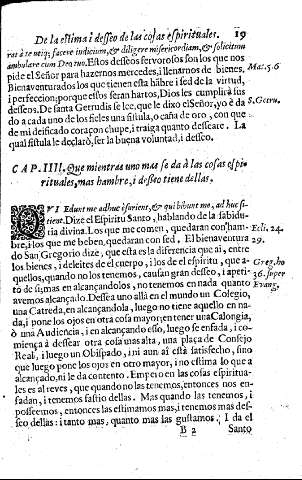 De la estima i desseo de las cosas espirituales. 19
ras à te utiq; facere iudicium, & diligere misericordiam, & solicitum
ambulare cum Deo tuo. Estos desseos fervorosos son los que nos
pide el Señor para hazernos mercedes, i llenarnos de bienes.
Bienaventurados los que tienen esta hãbre i sed de la virtud, Mat. 5. 6
i perfeccion; porque essos seràn hartos, Dios les cumplirà sus
desseos. De santa Getrudis se lee, que le dixo el Señor, yo è da S. Getru.
do a cada uno de los fieles una fistula, o caña de oro, con que
de mi deificado coraçon chupe, i traiga quanto desseare. La
qual fistula le declarò, ser la buena voluntad, i desseo.
CAP. IIII. Que mientras uno mas se dà à las cosas espi-
rituales, mas hambre, i desseo tiene dellas.
QVI Edunt me adhuc esurient, & qui bibunt me, ad huc si-
tient. Dize el Espiritu Santo, hablando de la sabidu
ria divina. Los que me comen, quedaràn con ham- Ecli. 24.
bre, i los que me beben, quedaràn con sed. El bienaventura 29.
do San Gregorio dize, que esta es la diferencia que ai, entre
los bienes, i deleites de el cuerpo, i los de el espiritu, que a- Greg. ho
quellos, quando no los tenemos, causan gran desseo, i apeti- 36. super
to de si; mas en alcançandolos, no tenemos en nada quanto Evang.
avemos alcançado. Dessea uno allà en el mundo un Colegio,
una Catreda, en alcançandola, luego no tiene aquello en na-
da, i pone los ojos en otra cosa mayor; en tener una Calongia,
ò una Audiencia, i en alcançando esso, luego se enfada, i co-
miença à dessear otra cosa mas alta, una plaça de Consejo
Real, i luego un Obispado, i ni aun ai està satisfecho, sino
que luego pone los ojos en otro mayor, i no estima lo que a
alcançado, ni le da contento. Empero en las cosas espiritua-
les es al reves, que quando no las tenemos, entonces nos en-
fadan, i tenemos fastio dellas. Mas quando las tenemos, i
posseemos, entonces las estimamos mas, i tenemos mas des-
seo dellas: i tanto mas, quanto mas las gustamos. I da el
B 2 Santo